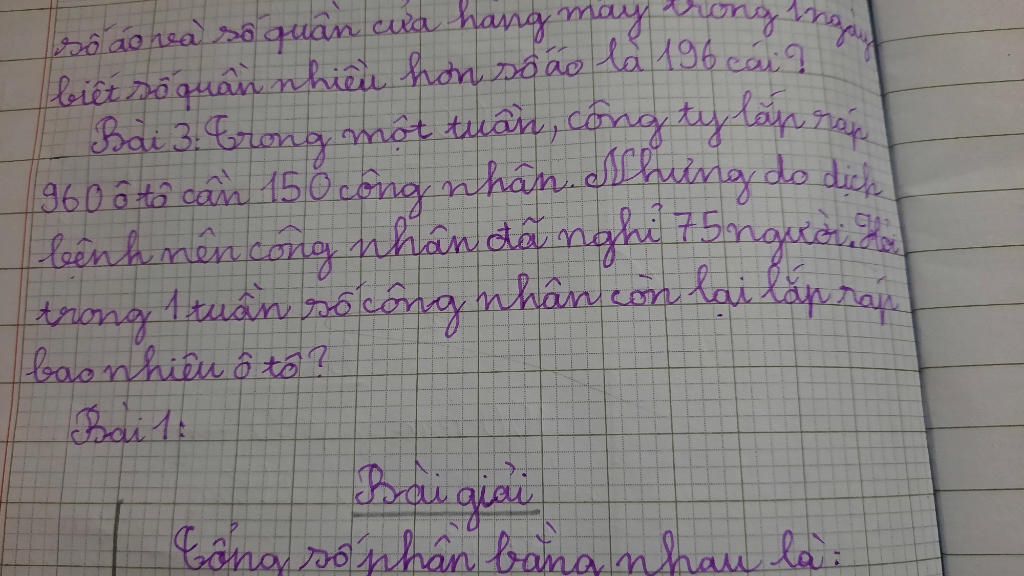 số áo và số quần của hàng may trong 1 ngày
biết số quần nhiều hơn số áo là 196 cái?
Bài 3: Trong một tuần, công ty lắp ráp
960 ô tô cần 150 công nhân. Nhưng do dịch
bệnh nên công nhân đã nghỉ 75 người. Hỏi
trong 1 tuần số công nhân còn lại lắp ráp
bao nhiêu ô tô?
Bài 1:
Bài giải
Tổng số phần bằng nhau là: